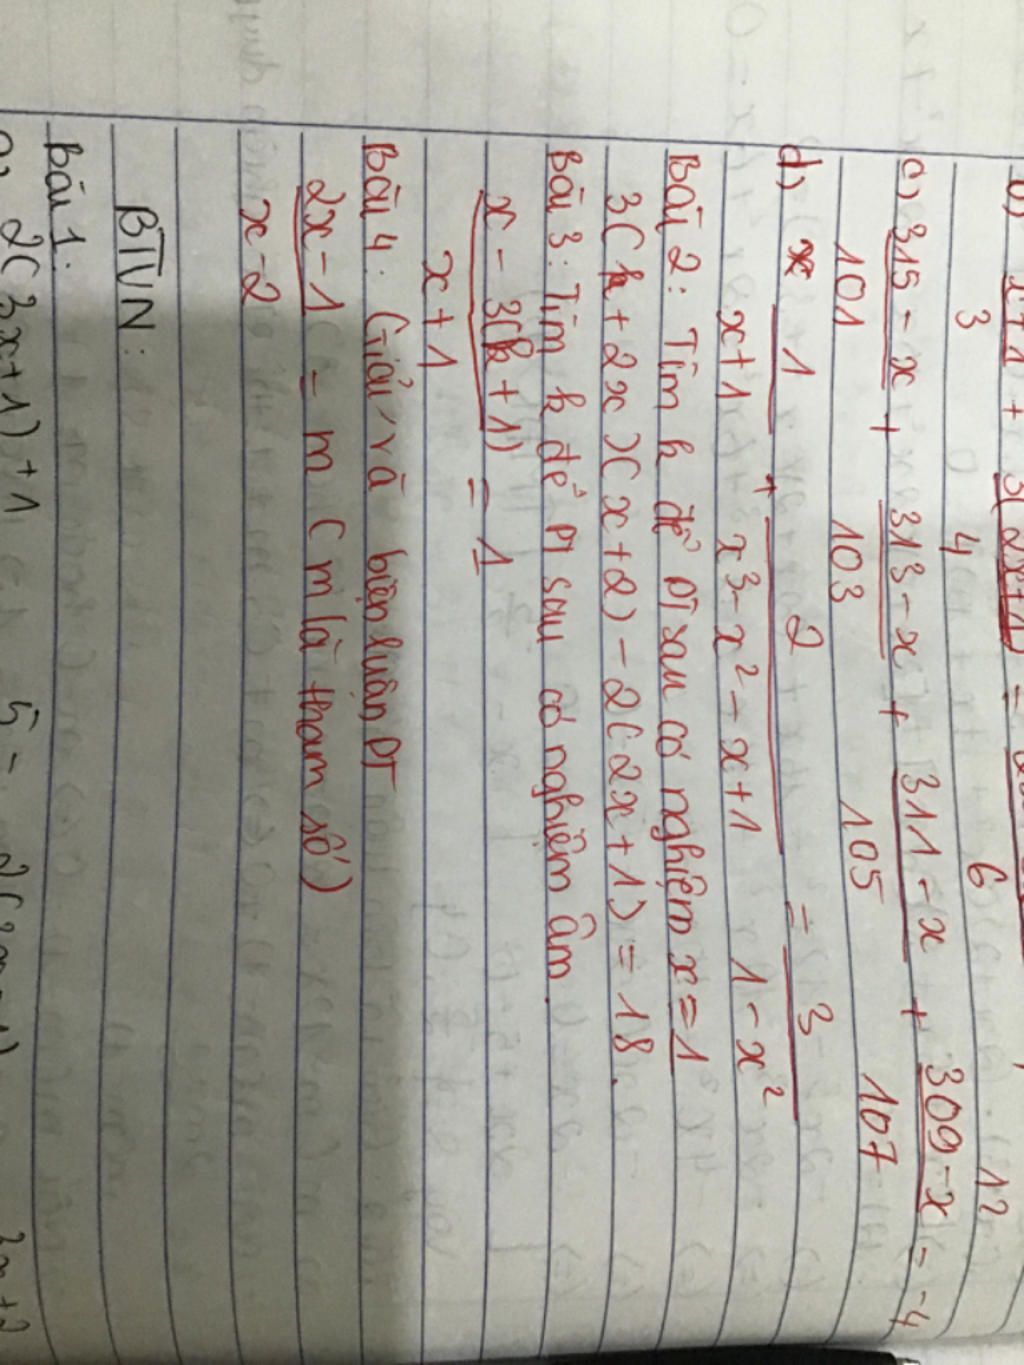 3 4 6 12
c) 315 - x + 313 - x + 311 - x + 309 - x = -4
101 103 105 107
d) x 1 + 2 = 3
x+1 x³ - x² - x + 1 1 - x²
Bài 2: Tìm k để PT sau có nghiệm x = 1
3(k + 2x)(x + 2) - 2(2x + 1) = 18.
Bài 3: Tìm k để PT sau có nghiệm âm.
x - 3(k + 1) = 1
x + 1
Bài 4: Giải và biện luận PT
2x - 1 = m (m là tham số)
x - 2
BTVN:
Bài 1:
2(3x+1)+1